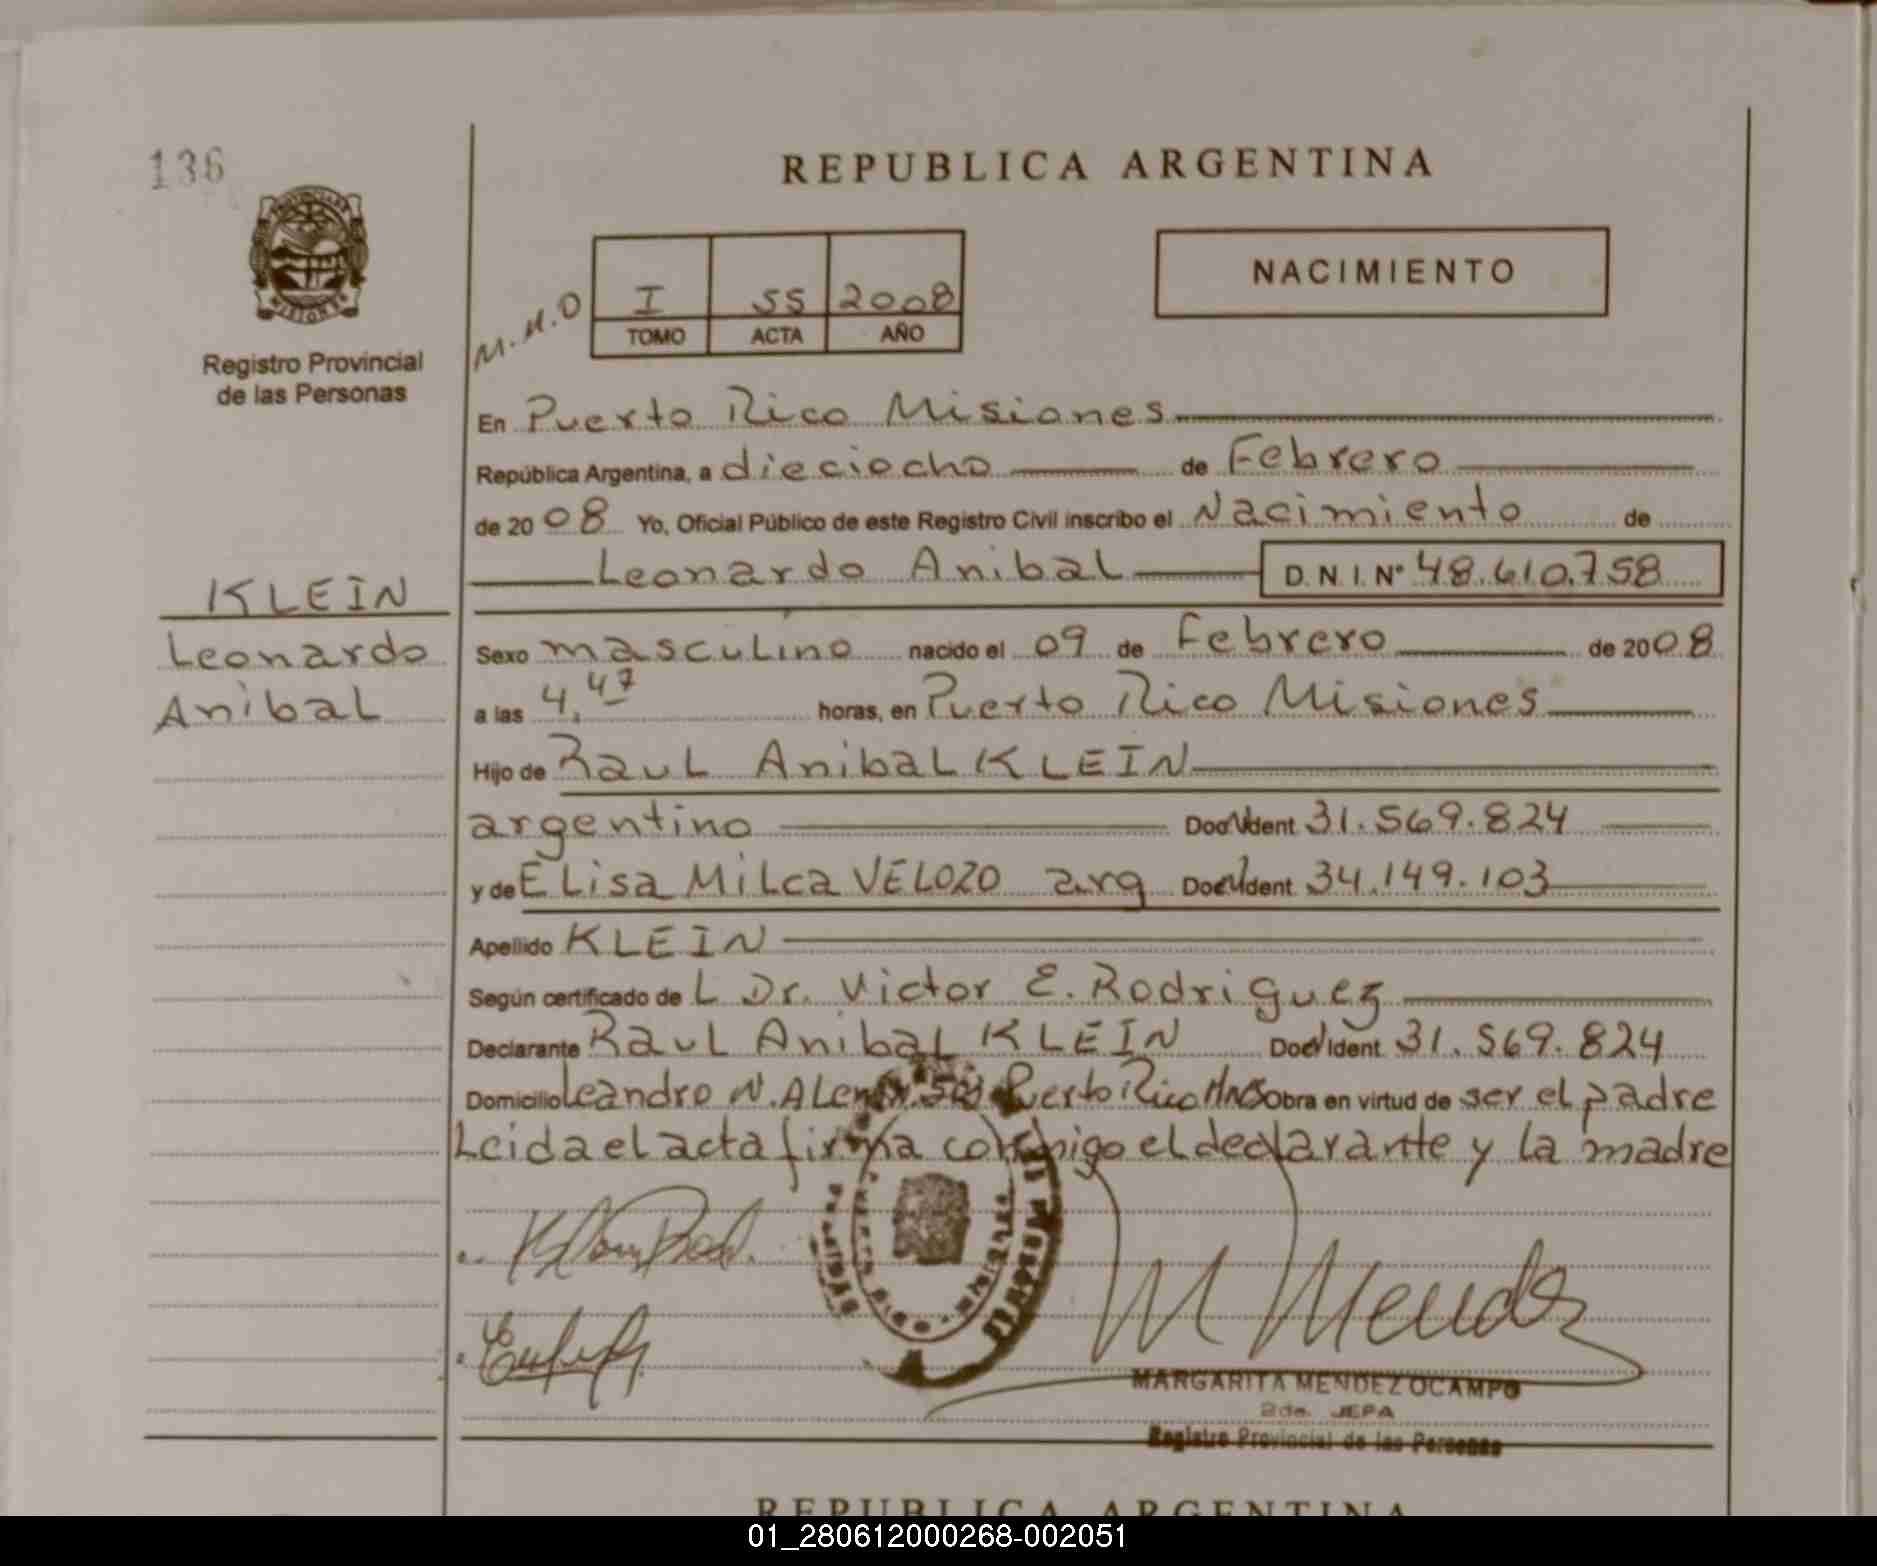 136
REPUBLICA ARGENTINA
NACIMIENTO
M.M.O
I 55 2008
TOMO ACTA AÑO
Registro Provincial
de las Personas
En Puerto Rico Misiones
República Argentina, a dieciocho de Febrero
de 2008 Yo, Oficial Público de este Registro Civil inscribo el Nacimiento de
Leonardo Anibal D.N.I. Nº 48.610.758
KLEIN
Leonardo
Anibal
Sexo masculino nacido el 09 de Febrero de 2008
a las 4.47 horas, en Puerto Rico Misiones
Hijo de Raul Anibal KLEIN
argentino Doc Ident 31.569.824
y de Elisa Milca VELOZO arg Doc Ident 34.149.103
Apellido KLEIN
Según certificado de L Dr. Victor E. Rodriguez
Declarante Raul Anibal KLEIN Doc Ident 31.569.824
Domicilio Leandro N. Alem Puerto Rico Mnes Obra en virtud de ser el padre
Leida el acta firma conmigo el declarante y la madre
M Mendez
MARGARITA MENDEZ OCAMPO
2da. JEPA
Registro Provincial de las Personas
REPUBLICA ARGENTINA
01_280612000268-002051